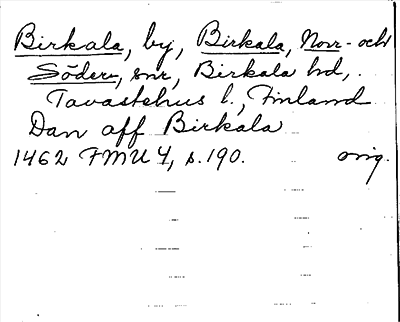 Birkala, by, Birkala, Norr- och
Söder, snr, Birkala hd,
Tavastehus l., Finland
Dan aff Birkala
1462 FMU 4, s. 190. orig.